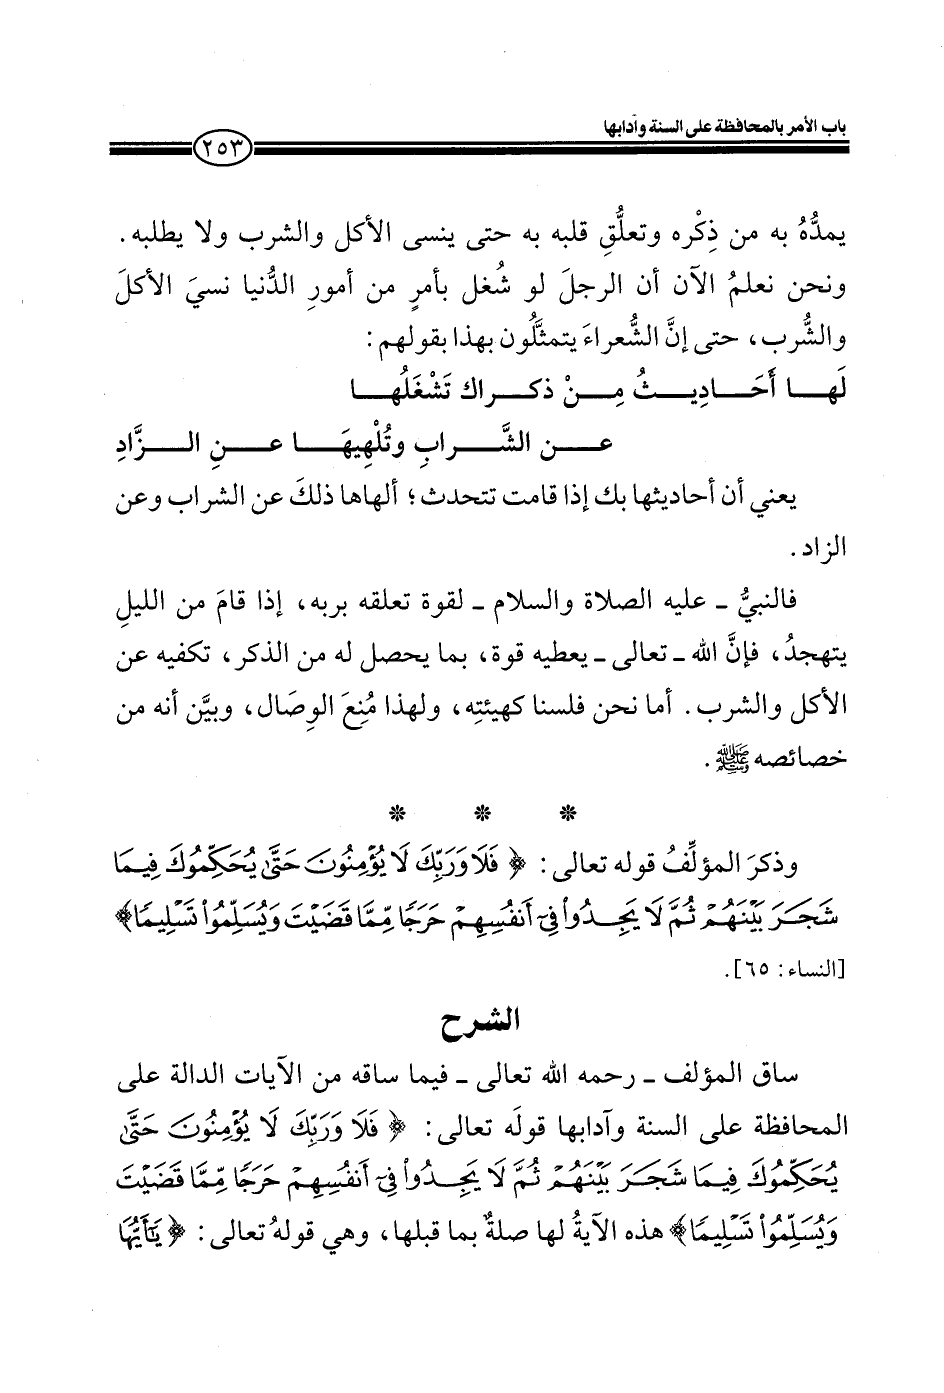 باب الأمر بالمحافظة على السنة وآدابها
٢٥٣
يمدُّهُ به من ذِكْره وتعلُّقِ قلبه به حتى ينسى الأكل والشرب ولا يطلبه.
ونحن نعلمُ الآن أن الرجلَ لو شُغل بأمرٍ من أمورِ الدُّنيا نسيَ الأكلَ
والشُّرب، حتى إنَّ الشُّعراءَ يتمثَّلُون بهذا بقولهم:
لَهـا أَحَـادِيـثُ مِـنْ ذكـراك تَشْغَلُهـا
عـن الشَّـرابِ وتُلْهِيهَـا عـنِ الـزَّادِ
يعني أن أحاديثها بك إذا قامت تتحدث؛ ألهاها ذلكَ عن الشراب وعن
الزاد.
فالنبيُّ ـ عليه الصلاة والسلام ـ لقوة تعلقه بربه، إذا قامَ من الليلِ
يتهجدُ، فإنَّ الله ـ تعالى ـ يعطيه قوة، بما يحصل له من الذكر، تكفيه عن
الأكل والشرب. أما نحن فلسنا كهيئتِه، ولهذا مُنِعَ الوِصَال، وبيَّن أنه من
خصائصه ﷺ.
* * *
وذكرَ المؤلِّفُ قوله تعالى: ﴿ فَلَا وَرَبِّكَ لَا يُؤْمِنُونَ حَتَّىٰ يُحَكِّمُوكَ فِيمَا
شَجَرَ بَيْنَهُمْ ثُمَّ لَا يَجِدُوا۟ فِىٓ أَنفُسِهِمْ حَرَجًا مِّمَّا قَضَيْتَ وَيُسَلِّمُوا۟ تَسْلِيمًا﴾
[النساء: ٦٥].
الشرح
ساق المؤلف ـ رحمه الله تعالى ـ فيما ساقه من الآيات الدالة على
المحافظة على السنة وآدابها قولَه تعالى: ﴿ فَلَا وَرَبِّكَ لَا يُؤْمِنُونَ حَتَّىٰ
يُحَكِّمُوكَ فِيمَا شَجَرَ بَيْنَهُمْ ثُمَّ لَا يَجِدُوا۟ فِىٓ أَنفُسِهِمْ حَرَجًا مِّمَّا قَضَيْتَ
وَيُسَلِّمُوا۟ تَسْلِيمًا﴾ هذه الآيةُ لها صلةٌ بما قبلها، وهي قولهُ تعالى: ﴿ يَـٰٓأَيُّهَا